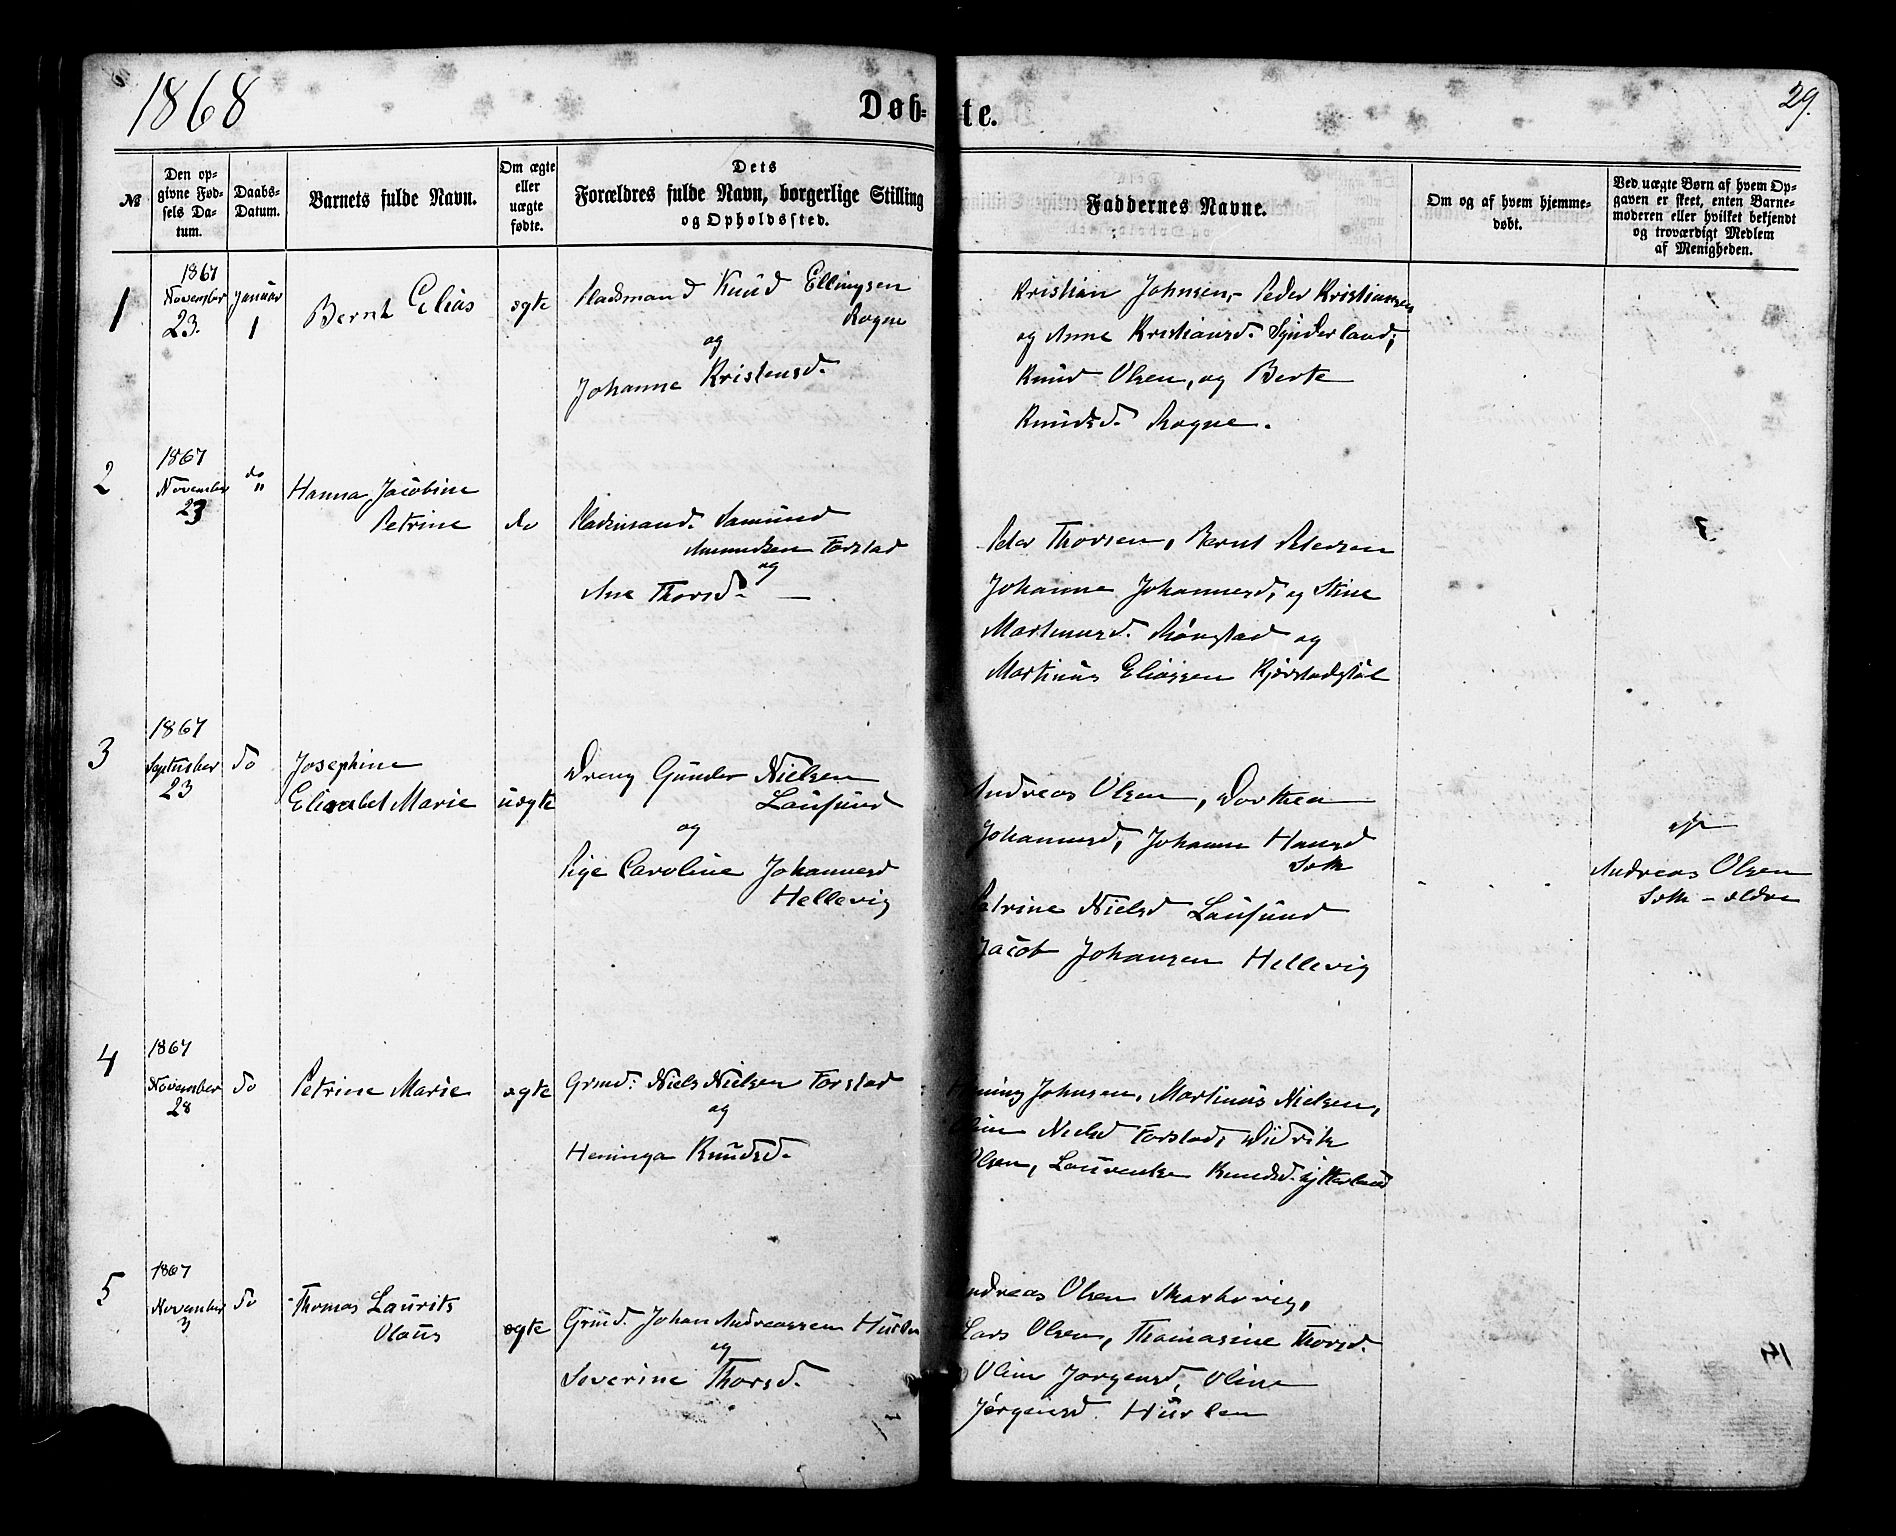 1868
Døb-
te.
29.
№
Den op-
givne Fød-
sels Da-
tum.
Daabs-
Datum.
Barnets fulde Navn.
Om ægte
eller
uægte
fødte.
Dets
Forældres fulde Navn, borgerlige Stilling
og Opholdssted.
Faddernes Navne.
Om og af hvem hjemme-
døbt.
Ved uægte Børn af hvem Op-
gaven er skeet, enten Barne-
moderen eller hvilket bekjendt
og troværdigt Medlem
af Menigheden.
1
1867
November
23.
Januar
1
Bernt Elias
ægte
Pladsmand Knud Ellingsen
Rogne
og
Johanne Kristensd.
Kristian Johnsen, Peder Kristiansen
og Anne Kristiansd. Synderland,
Knud Olsen, og Berte
Knudsd. Rogne.
2
1867
November
23
do
"
Hanna Jacobine
Petrine
do
Pladsmand. Samund
Amundsen Farstad
og
Ane Thorsd. —
Peder Thorsen, Bernt Petersen
Johanne Johannesd, og Stine
Martinusd. Rørstad og
Martinus Eliassen
3
1867
September
23
do
Josephine
Elisabet Marie
uægte
Dreng Gunder Nielsen
Lausund
og
Pige Caroline Johannesd
Hellevig
Andreas Olsen, Dorthea
Johannesd, Johanne Hansd
Petrine Nielsd Lausund
Jacob Johansen Hellevig
Andreas Olsen
4
1867
November
28
do
Petrine Marie
ægte
Grmd: Niels Nielsen Farstad
og
Heninga Knudsd.
Johnsen, Martinus Nielsen,
Nielsd Farstad, Didrik
Olsen, Laurentse Knudsd. Ytterland
5
1867
November
3
do
Thomas Laurits
Olaus
ægte
Grmd. Johan Andreassen Hurlen
og
Severine Thorsd.
Andreas Olsen Skarbøvig,
Lars Olsen, Thomasine Thorsd.
Oline Jørgensd, Oline
Jørgensd. Hurlen